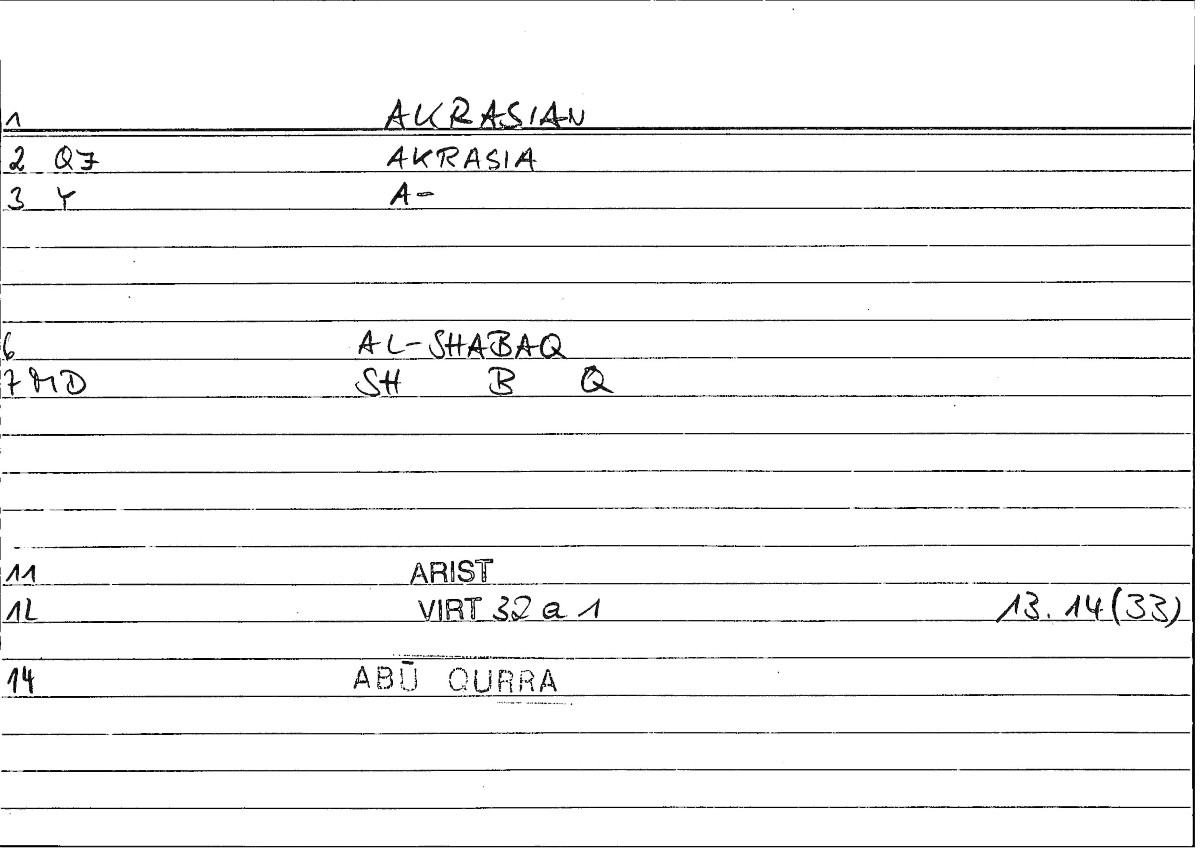 1 AKRASIAN
2 QZ AKRASIA
3 Y A-
6 AL-SHABAQ
7 MD SH B Q
11 ARIST
12 VIRT 32 a 1 13. 14 (33)
14 ABŪ QURRA